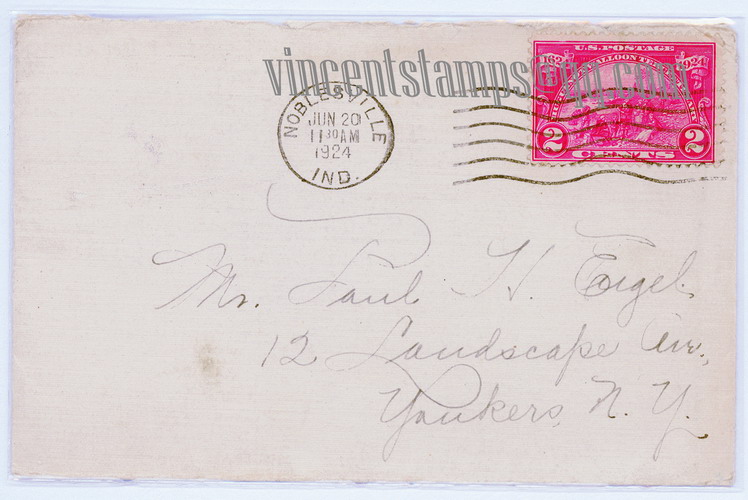 vincentstamps@qq.com
U.S. POSTAGE
1624 1924
2 CENTS 2
NOBLESVILLE
JUN 20
11 30 AM
1924
IND.
Mr. Paul H. Eigel,
12 Landscape Ave.,
Yonkers, N. Y.